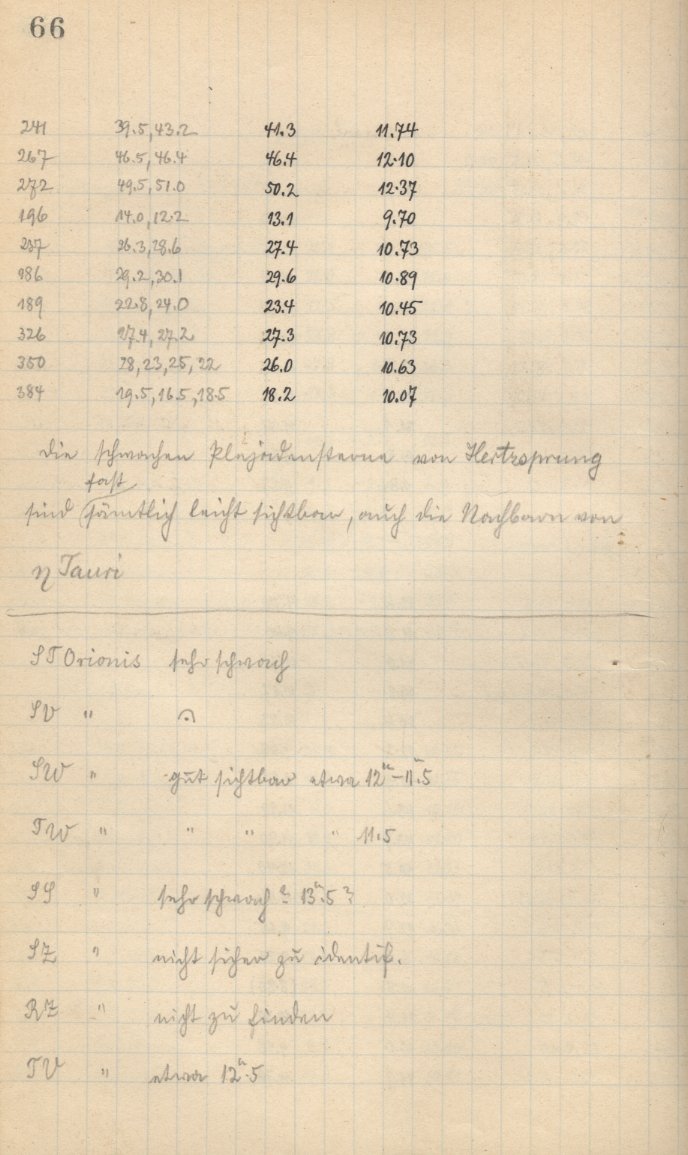 66
241 39.5, 43.2 41.3 11.74
267 46.5, 46.4 46.4 12.10
272 49.5, 51.0 50.2 12.37
196 14.0, 12.2 13.1 9.70
237 26.3, 28.6 27.4 10.73
186 29.2, 30.1 29.6 10.89
189 22.8, 24.0 23.4 10.45
326 27.4, 27.2 27.3 10.73
350 28, 23, 25, 22 26.0 10.63
384 19.5, 16.5, 18.5 18.2 10.07
Die schwachen Plejadensterne von Hertzsprung
fast
sind sämtlich leicht sichtbar, auch die Nachbarn von
η Tauri
ST Orionis sehr schwach
SV "
SW " gut sichtbar etwa 12ᵐ–11ᵐ.5
TW " " " " 11.5
SS " sehr schwach ? 13ᵐ.5 ?
SZ " nicht sicher zu identif.
RZ " nicht zu finden
TV " etwa 12ᵐ.5